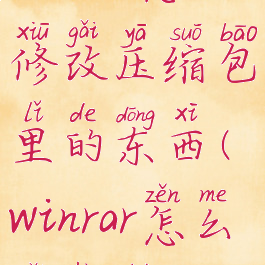 xiū gǎi yā suō bāo
修改压缩包
lǐ de dōng xī
里的东西(
zěn me
winrar怎么